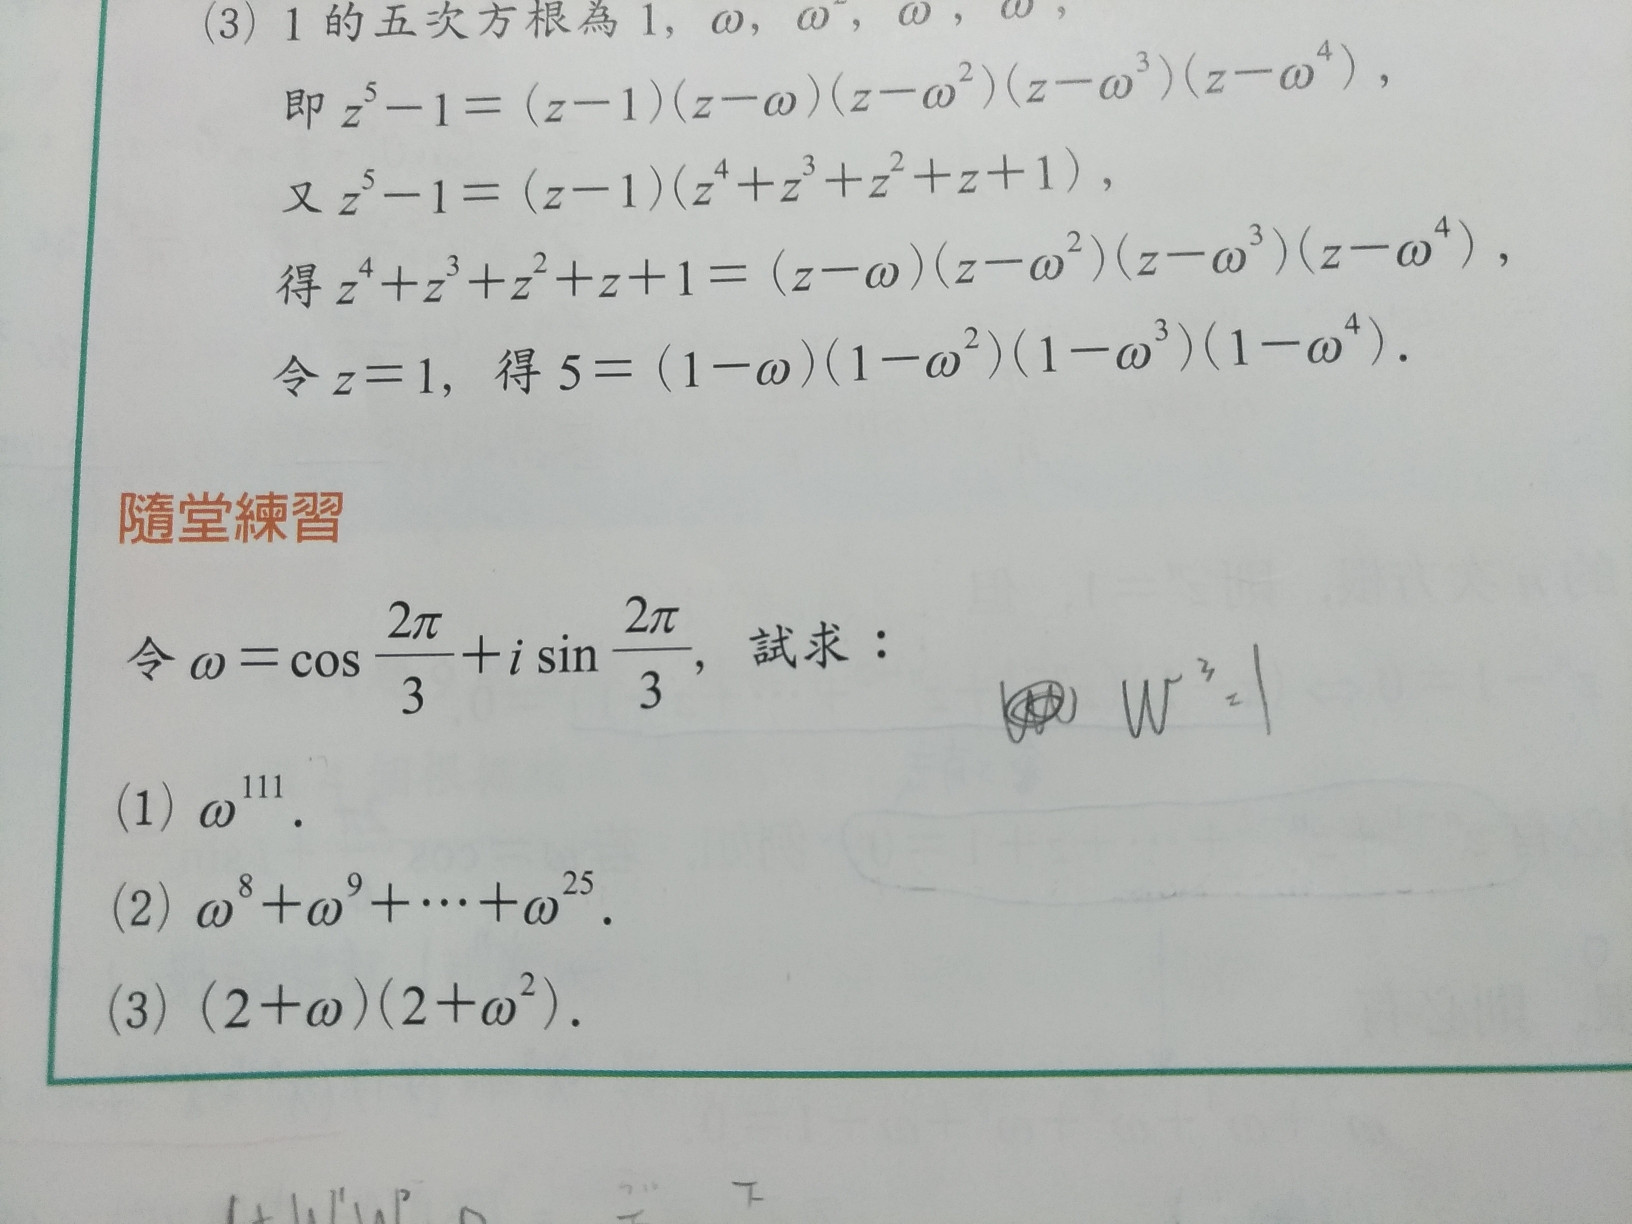 (3) 1 的五次方根為 1, ω, ω², ω , ω ,
即 z⁵－1＝(z－1)(z－ω)(z－ω²)(z－ω³)(z－ω⁴)，
又 z⁵－1＝(z－1)(z⁴＋z³＋z²＋z＋1)，
得 z⁴＋z³＋z²＋z＋1＝(z－ω)(z－ω²)(z－ω³)(z－ω⁴)，
令 z＝1, 得 5＝(1－ω)(1－ω²)(1－ω³)(1－ω⁴).
隨堂練習
令 ω＝cos 2π/3＋i sin 2π/3, 試求：
W³=1
(1) ω¹¹¹.
(2) ω⁸＋ω⁹＋⋯＋ω²⁵.
(3) (2＋ω)(2＋ω²).